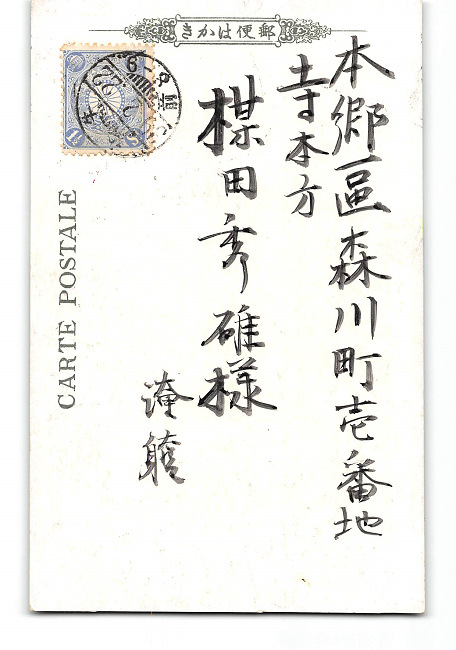 郵便はかき
本郷區森川町壱番地
寺本方
楳田秀雄様
CARTE POSTALE